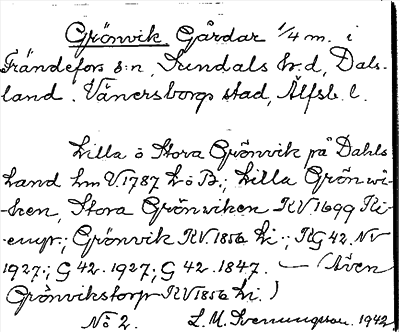 Grönvik Gårdar 1/4 m. i
Frändefors s:n, Sundals h:d, Dals-
land. Vänersborgs stad, Älfsb. l.
Lilla o Stora Grönvik på Dahls
Land Lm V. 1787 L o B.; Lilla Grönwi-
-ken, Stora Grönwiken RV 1699
Grönvik RV. 1856 Li.; RG 42. NV
1927.; G 42. 1927; G 42. 1847. — (Även
Grönvikstorp RV 1856 Li.)
No 2. L. M. Svenungsson. 1942